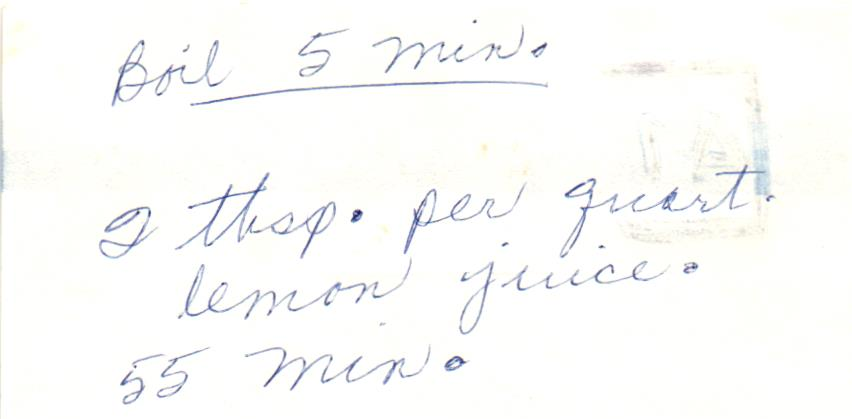 Boil 5 min.
2 tbsp. per quart.
lemon juice.
55 min.